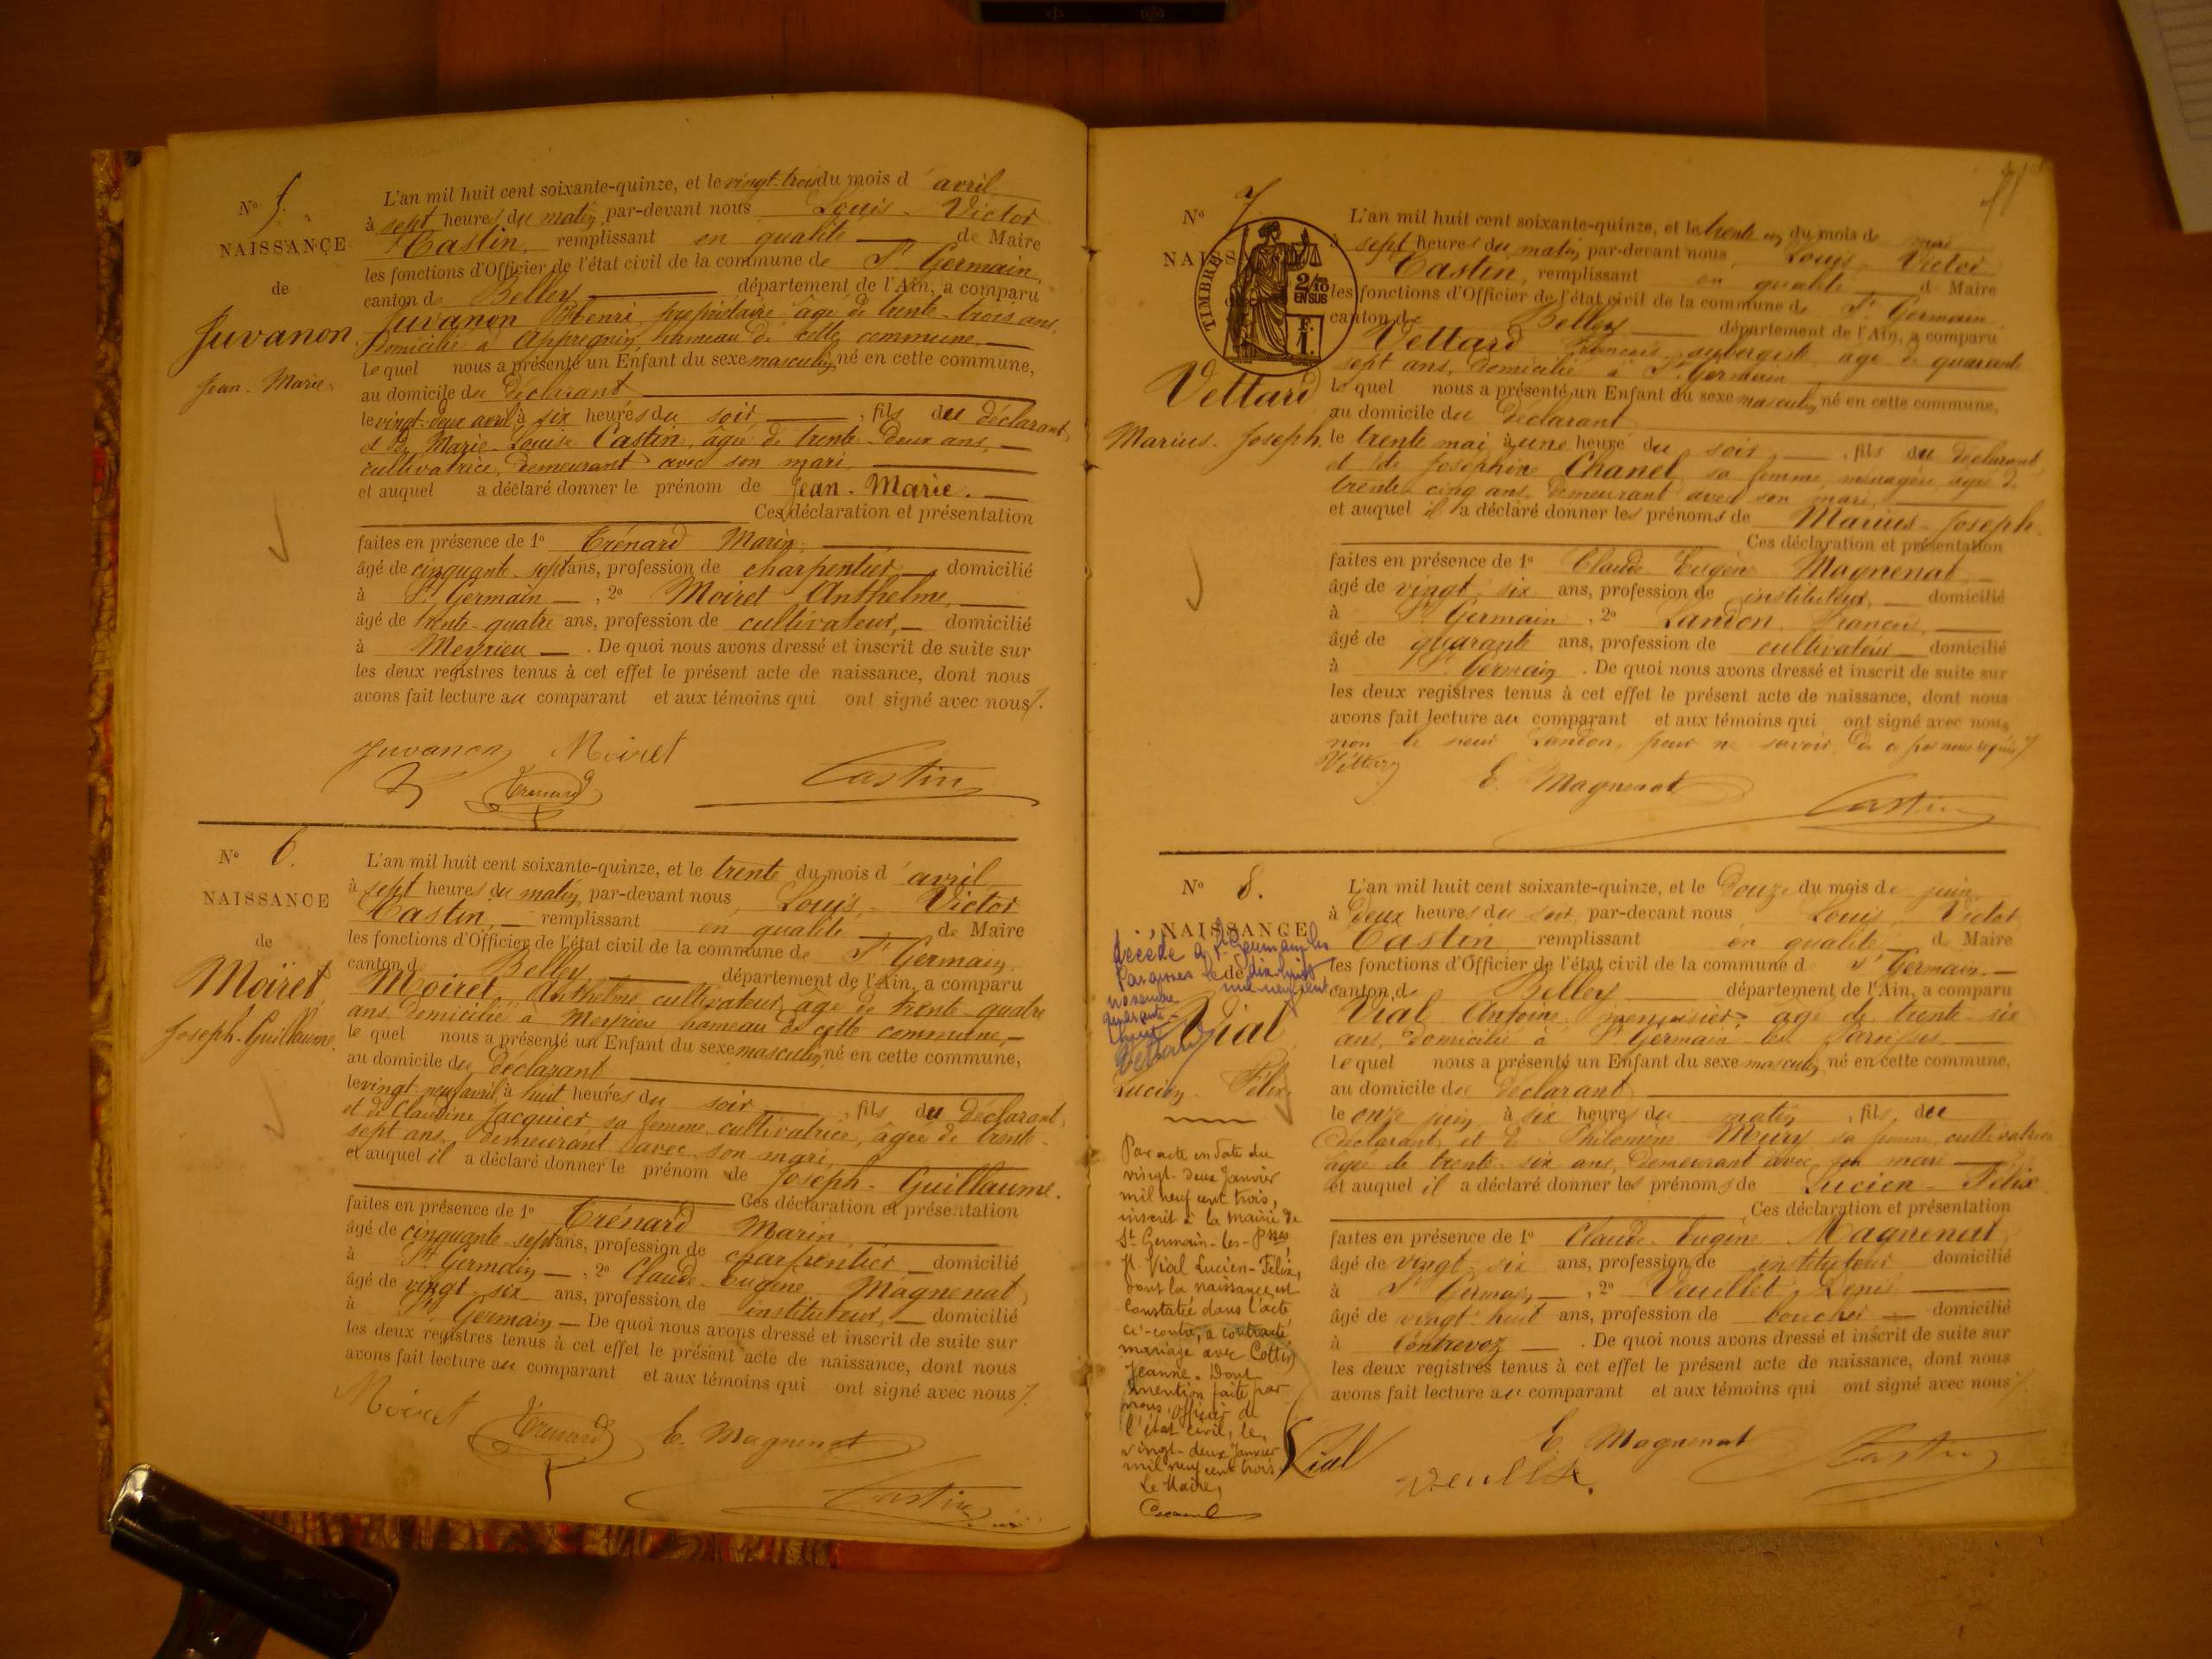 No 5.
NAISSANCE
de
Juvanon
Jean-Marie
L'an mil huit cent soixante-quinze, et le vingt-trois du mois d'avril
à sept heures du matin par-devant nous Louis-Victor
Castin, remplissant en qualité de Maire
les fonctions d'Officier de l'état civil de la commune de St Germain,
canton de Belley département de l'Ain, a comparu
Juvanon Henri, propriétaire âgé de trente-trois ans,
domicilié à Appregnin, hameau de cette commune,
lequel nous a présenté un Enfant du sexe masculin, né en cette commune,
au domicile du déclarant
le vingt-deux avril, à six heures du soir, fils du déclarant,
et de Marie-Louise Castin, âgée de trente-deux ans,
cultivatrice, demeurant avec son mari,
et auquel a déclaré donner le prénom de Jean-Marie.
Ces déclaration et présentation
faites en présence de 1o Trénard Marin,
âgé de cinquante-sept ans, profession de charpentier, domicilié
à St Germain, 2o Moiret Anthelme,
âgé de trente-quatre ans, profession de cultivateur, domicilié
à Meyrieu. De quoi nous avons dressé et inscrit de suite sur
les deux registres tenus à cet effet le présent acte de naissance, dont nous
avons fait lecture au comparant et aux témoins qui ont signé avec nous.
Juvanon Moiret
Trenard Castin
No 6.
NAISSANCE
de
Moiret
Joseph-Guillaume
L'an mil huit cent soixante-quinze, et le trente du mois d'avril
à sept heures du matin, par-devant nous, Louis-Victor
Castin, remplissant en qualité de Maire
les fonctions d'Officier de l'état civil de la commune de St Germain
canton de Belley département de l'Ain, a comparu
Moiret Anthelme cultivateur, âgé de trente-quatre
ans, domicilié à Meyrieu, hameau de cette commune,
lequel nous a présenté un Enfant du sexe masculin, né en cette commune,
au domicile du déclarant
le vingt-neuf avril, à huit heures du soir, fils du déclarant,
et de Claudine Jacquier, sa femme, cultivatrice, âgée de trente-
sept ans demeurant avec son mari,
et auquel il a déclaré donner le prénom de Joseph-Guillaume.
Ces déclaration et présentation
faites en présence de 1o Trénard Marin,
âgé de cinquante-sept ans, profession de charpentier domicilié
à St Germain, 2o Claude-Eugène Magnenat,
âgé de vingt-six ans, profession de instituteur, domicilié
à St Germain De quoi nous avons dressé et inscrit de suite sur
les deux registres tenus à cet effet le présent acte de naissance, dont nous
avons fait lecture au comparant et aux témoins qui ont signé avec nous.
Moiret Trenard E. Magnenat
Castin
No 7
NAISSANCE
TIMBRE
2/10
EN SUS
F.
1.
Vettard
Marius-Joseph.
L'an mil huit cent soixante-quinze, et le trente un du mois de mai
à sept heures du matin par-devant nous Louis-Victor
Castin, remplissant en qualité de Maire
les fonctions d'Officier de l'état civil de la commune de St Germain
canton de Belley département de l'Ain, a comparu
Vettard François, aubergiste âgé de quarante
sept ans, domicilié à St Germain
lequel nous a présenté un Enfant du sexe masculin, né en cette commune,
au domicile du déclarant
le trente mai à une heure du soir, fils du déclarant
et de Joséphine Chanel, sa femme, ménagère, âgée de
trente-cinq ans, demeurant avec son mari,
et auquel il a déclaré donner les prénoms de Marius-Joseph.
Ces déclaration et présentation
faites en présence de 1o Claude Eugène Magnenat,
âgé de vingt-six ans, profession de instituteur, domicilié
à St Germain, 2o Landon François,
âgé de quarante ans, profession de cultivateur domicilié
à St Germain. De quoi nous avons dressé et inscrit de suite sur
les deux registres tenus à cet effet le présent acte de naissance, dont nous
avons fait lecture au comparant et aux témoins qui ont signé avec nous
non le sieur Landon, pour ne savoir, de ce par nous requis.
Vettard E. Magnenat
Castin
No 8.
NAISSANCE
décédé à St Germain les
Paroisses le dix huit
novembre mil neuf cent
quarante-
Vettard
Vial
Lucien-Félix
Par acte en date du
vingt-deux Janvier
mil neuf cent trois,
inscrit à la mairie de
St Germain-les-Psses,
M. Vial Lucien-Félix,
dont la naissance est
constatée dans l'acte
ci-contre, a contracté
mariage avec Cottin
Jeanne. Dont
mention faite par
nous, officier de
l'état civil, le
vingt-deux Janvier
mil neuf cent trois.
Le Maire,
L'an mil huit cent soixante-quinze, et le douze du mois de juin
à deux heures du soir, par-devant nous Louis-Victor
Castin remplissant en qualité de Maire
les fonctions d'Officier de l'état civil de la commune d St Germain.
canton de Belley département de l'Ain, a comparu
Vial Antoine, menuisier, âgé de trente-six
ans, domicilié à St Germain-les Paroisses,
lequel nous a présenté un Enfant du sexe masculin, né en cette commune,
au domicile du déclarant
le onze juin, à six heures du matin, fils du
déclarant, et de Philomène Mury sa femme, cultivatrice
âgée de trente-six ans, demeurant avec son mari
et auquel il a déclaré donner les prénoms de Lucien-Félix
Ces déclaration et présentation
faites en présence de 1o Claude-Eugène Magnenat
âgé de vingt-six ans, profession de instituteur domicilié
à St Germain, 2o Veuillet, Denis
âgé de vingt-huit ans, profession de boucher domicilié
à Contrevoz. De quoi nous avons dressé et inscrit de suite sur
les deux registres tenus à cet effet le présent acte de naissance, dont nous
avons fait lecture au comparant et aux témoins qui ont signé avec nous
Vial E. Magnenat Castin